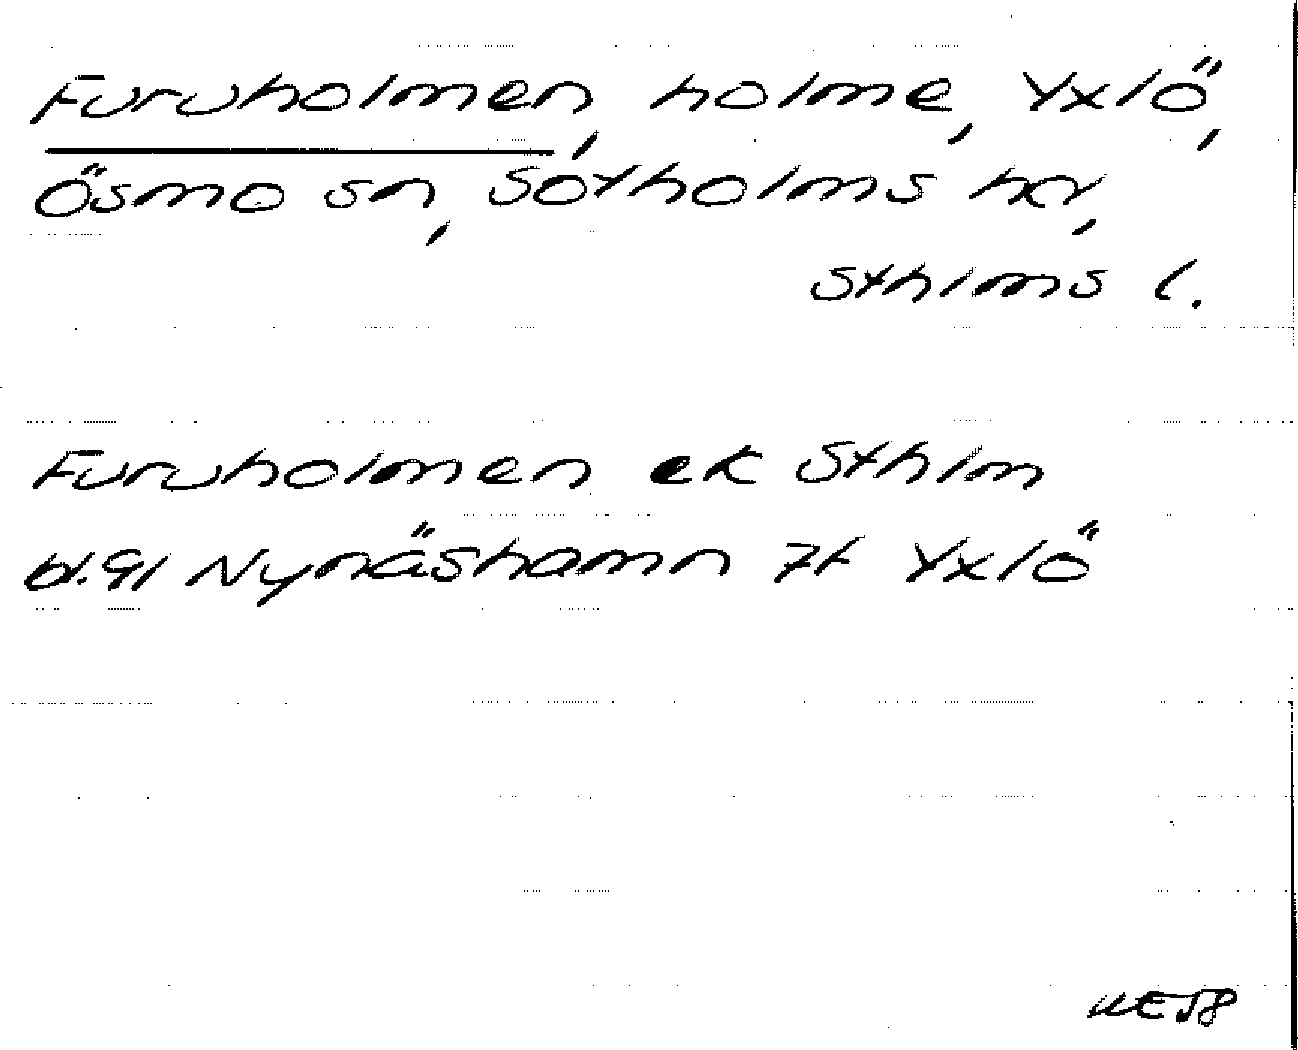 Furuholmen, holme, Yxlö,
Ösmo sn, Sotholms hd,
Sthlms l.
Furuholmen ek Sthlm
bl. 91 Nynäshamn 7f Yxlö